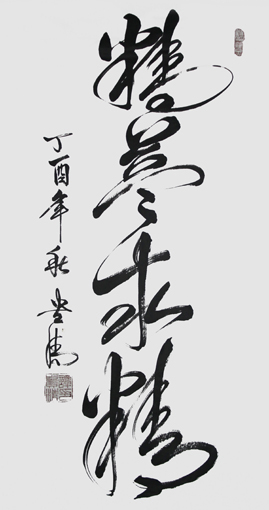 精益求精
丁酉年秋